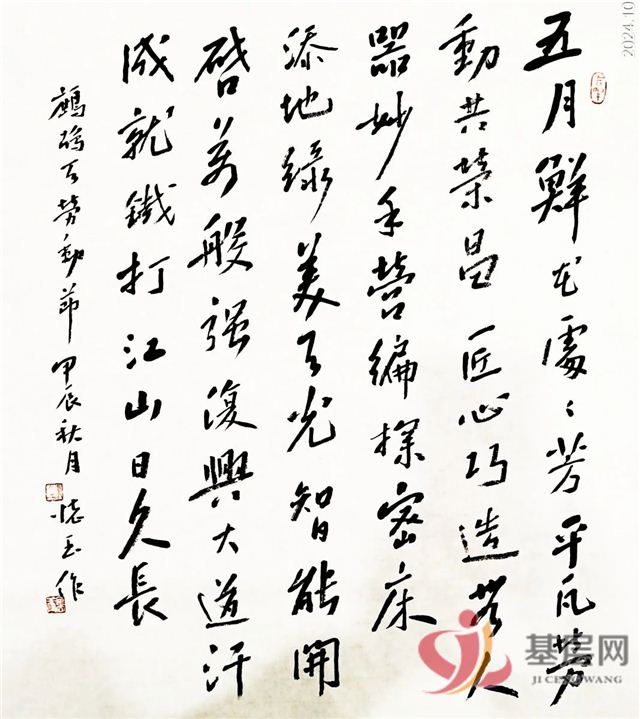 五月鮮花處〻芳平凡勞
動共榮昌匠心巧造無人
器妙手營編探密床
添地綠美天光智能開
啓萬般强復興大道汗
成就鐵打江山日久長
鷓鴣天勞動節 甲辰秋月 懷玉作
2024.10
基层网
JI CENG WANG